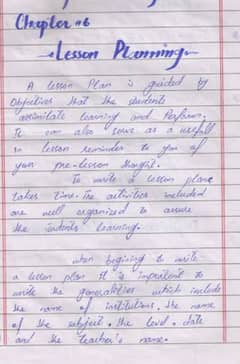 Chapter #6
Lesson Planning
A lesson Plan is guided by
Objectives that the students
assimilate learning and Perform.
It can also serve as a usefull
in lesson reminder to you of
your pre-lesson thought.
To write a lesson plane
takes time. The activities included
are well organized to assure
the students learning.
when begining to write
a lesson plan it is impratent to
write the generalities which include
the name of institutions. the name
of the subject. the level. date
and the teacher's name.